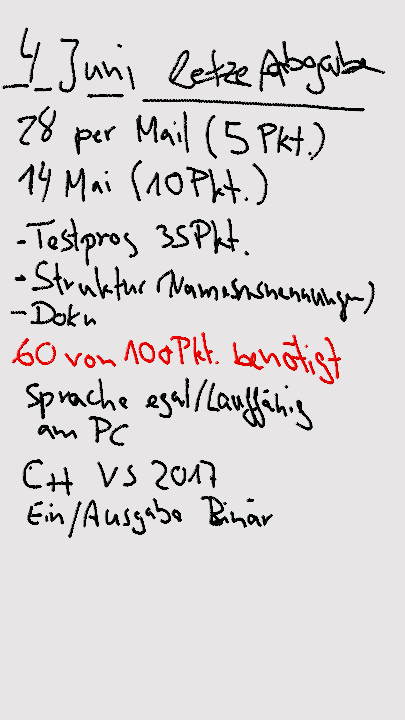 4 Juni, Letze Abgabe
28 per Mail (5 Pkt.)
14 Mai (10 Pkt.)
- Testprog 35Pkt.
- Struktur
- Doku
60 von 100Pkt. benötigt
Sprache egal/Lauffähig
am PC
C++ VS 2017
Ein/Ausgabe Binär